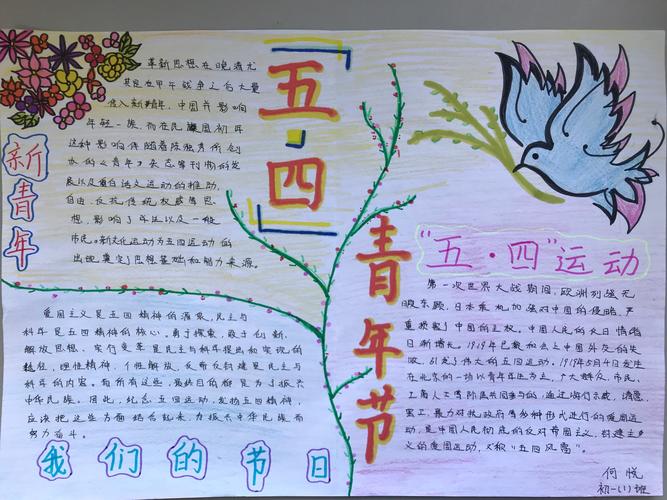 新青年
革新思想在晚清尤
其是在甲午战争之后大量
进入新青年,中国并影响
年轻一族,而在民国初年
这种影响伴随着陈独秀所创
办的《青年》杂志等刊物的发
展以及蔓白话文运动的推动,
自由、反抗传统权威等思
想,影响了学生以及一般
市民。新文化运动为五四运动的
出现奠定了思想基础和智力来源。
「五·四」
青年节
"五·四"运动
第一次世界大战期间,欧洲列强无
暇东顾,日本乘机加强对中国的侵略,严
重损害了中国的主权,中国人民的反日情绪
日渐增长。1919年巴黎和会上中国外交的失
败,引发了伟大的五四运动。1919年5月4日发生
在北京的一场以青年学生为主,广大群众、市民、
工商人士等阶层共同参与的,通过游行示威、请愿、
罢工、暴力对抗政府等多种形式进行的爱国运
动,是中国人民彻底的反对帝国主义,封建主
义的爱国运动,又称"五四风雷"。
何悦
初一(1)班
爱国主义是五四精神的源泉,民主与
科学是五四精神的核心,勇于探索、敢于创新、
解放思想、实行变革是民主与科学提出和实现的
途径,理性精神、个性解放、反帝反封建是民主与
科学的内容。而所有这些,最终目的都是为了振兴
中华民族。因此,纪念五四运动,发扬五四精神,
应该把这些方面结合起来,为振兴中华民族而
努力奋斗。
我们的节日